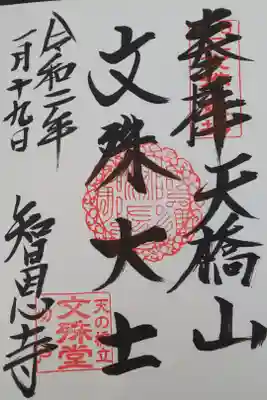 奉拝 天橋山
文殊大士
令和二年
一月十九日
智恩寺
天の橋立
文殊堂